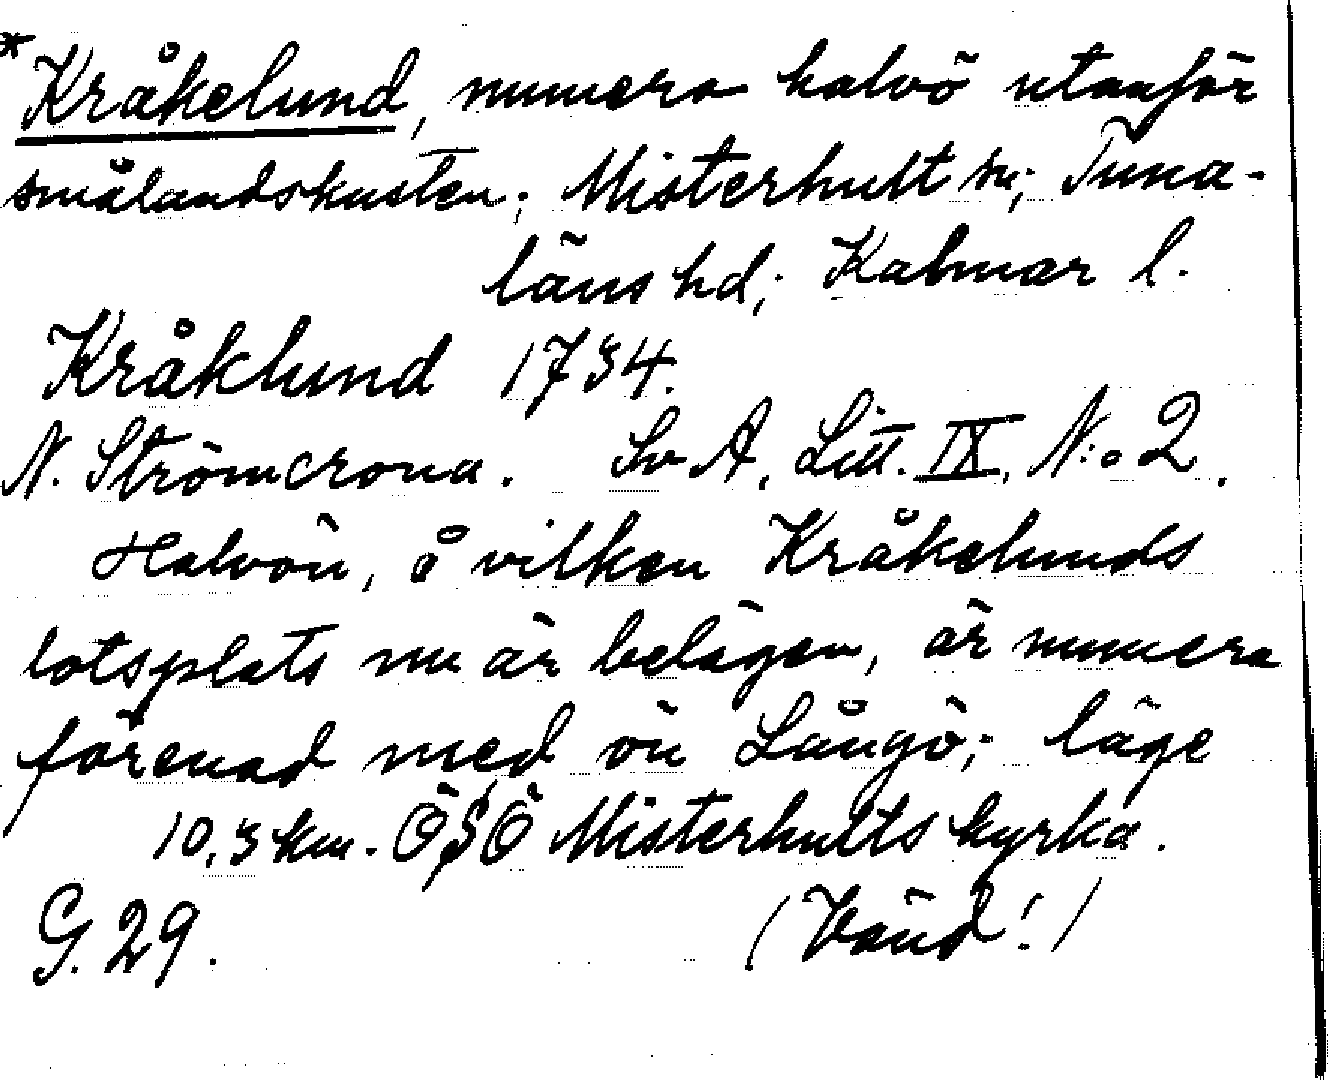 *Kråkelund, numera halvö utanför
smålandskusten; Misterhult sn; Tuna-
läns hd; Kalmar l.
Kråklund 1734.
N. Strömcrona. Sv A, Litt. IX, N:o 2.
Halvön, å vilken Kråkelunds
lotsplats nu är belägen, är numera
förenad med ön Långö; läge
10,3 km. ÖSÖ Misterhults kyrka.
G. 29. (Vänd!)